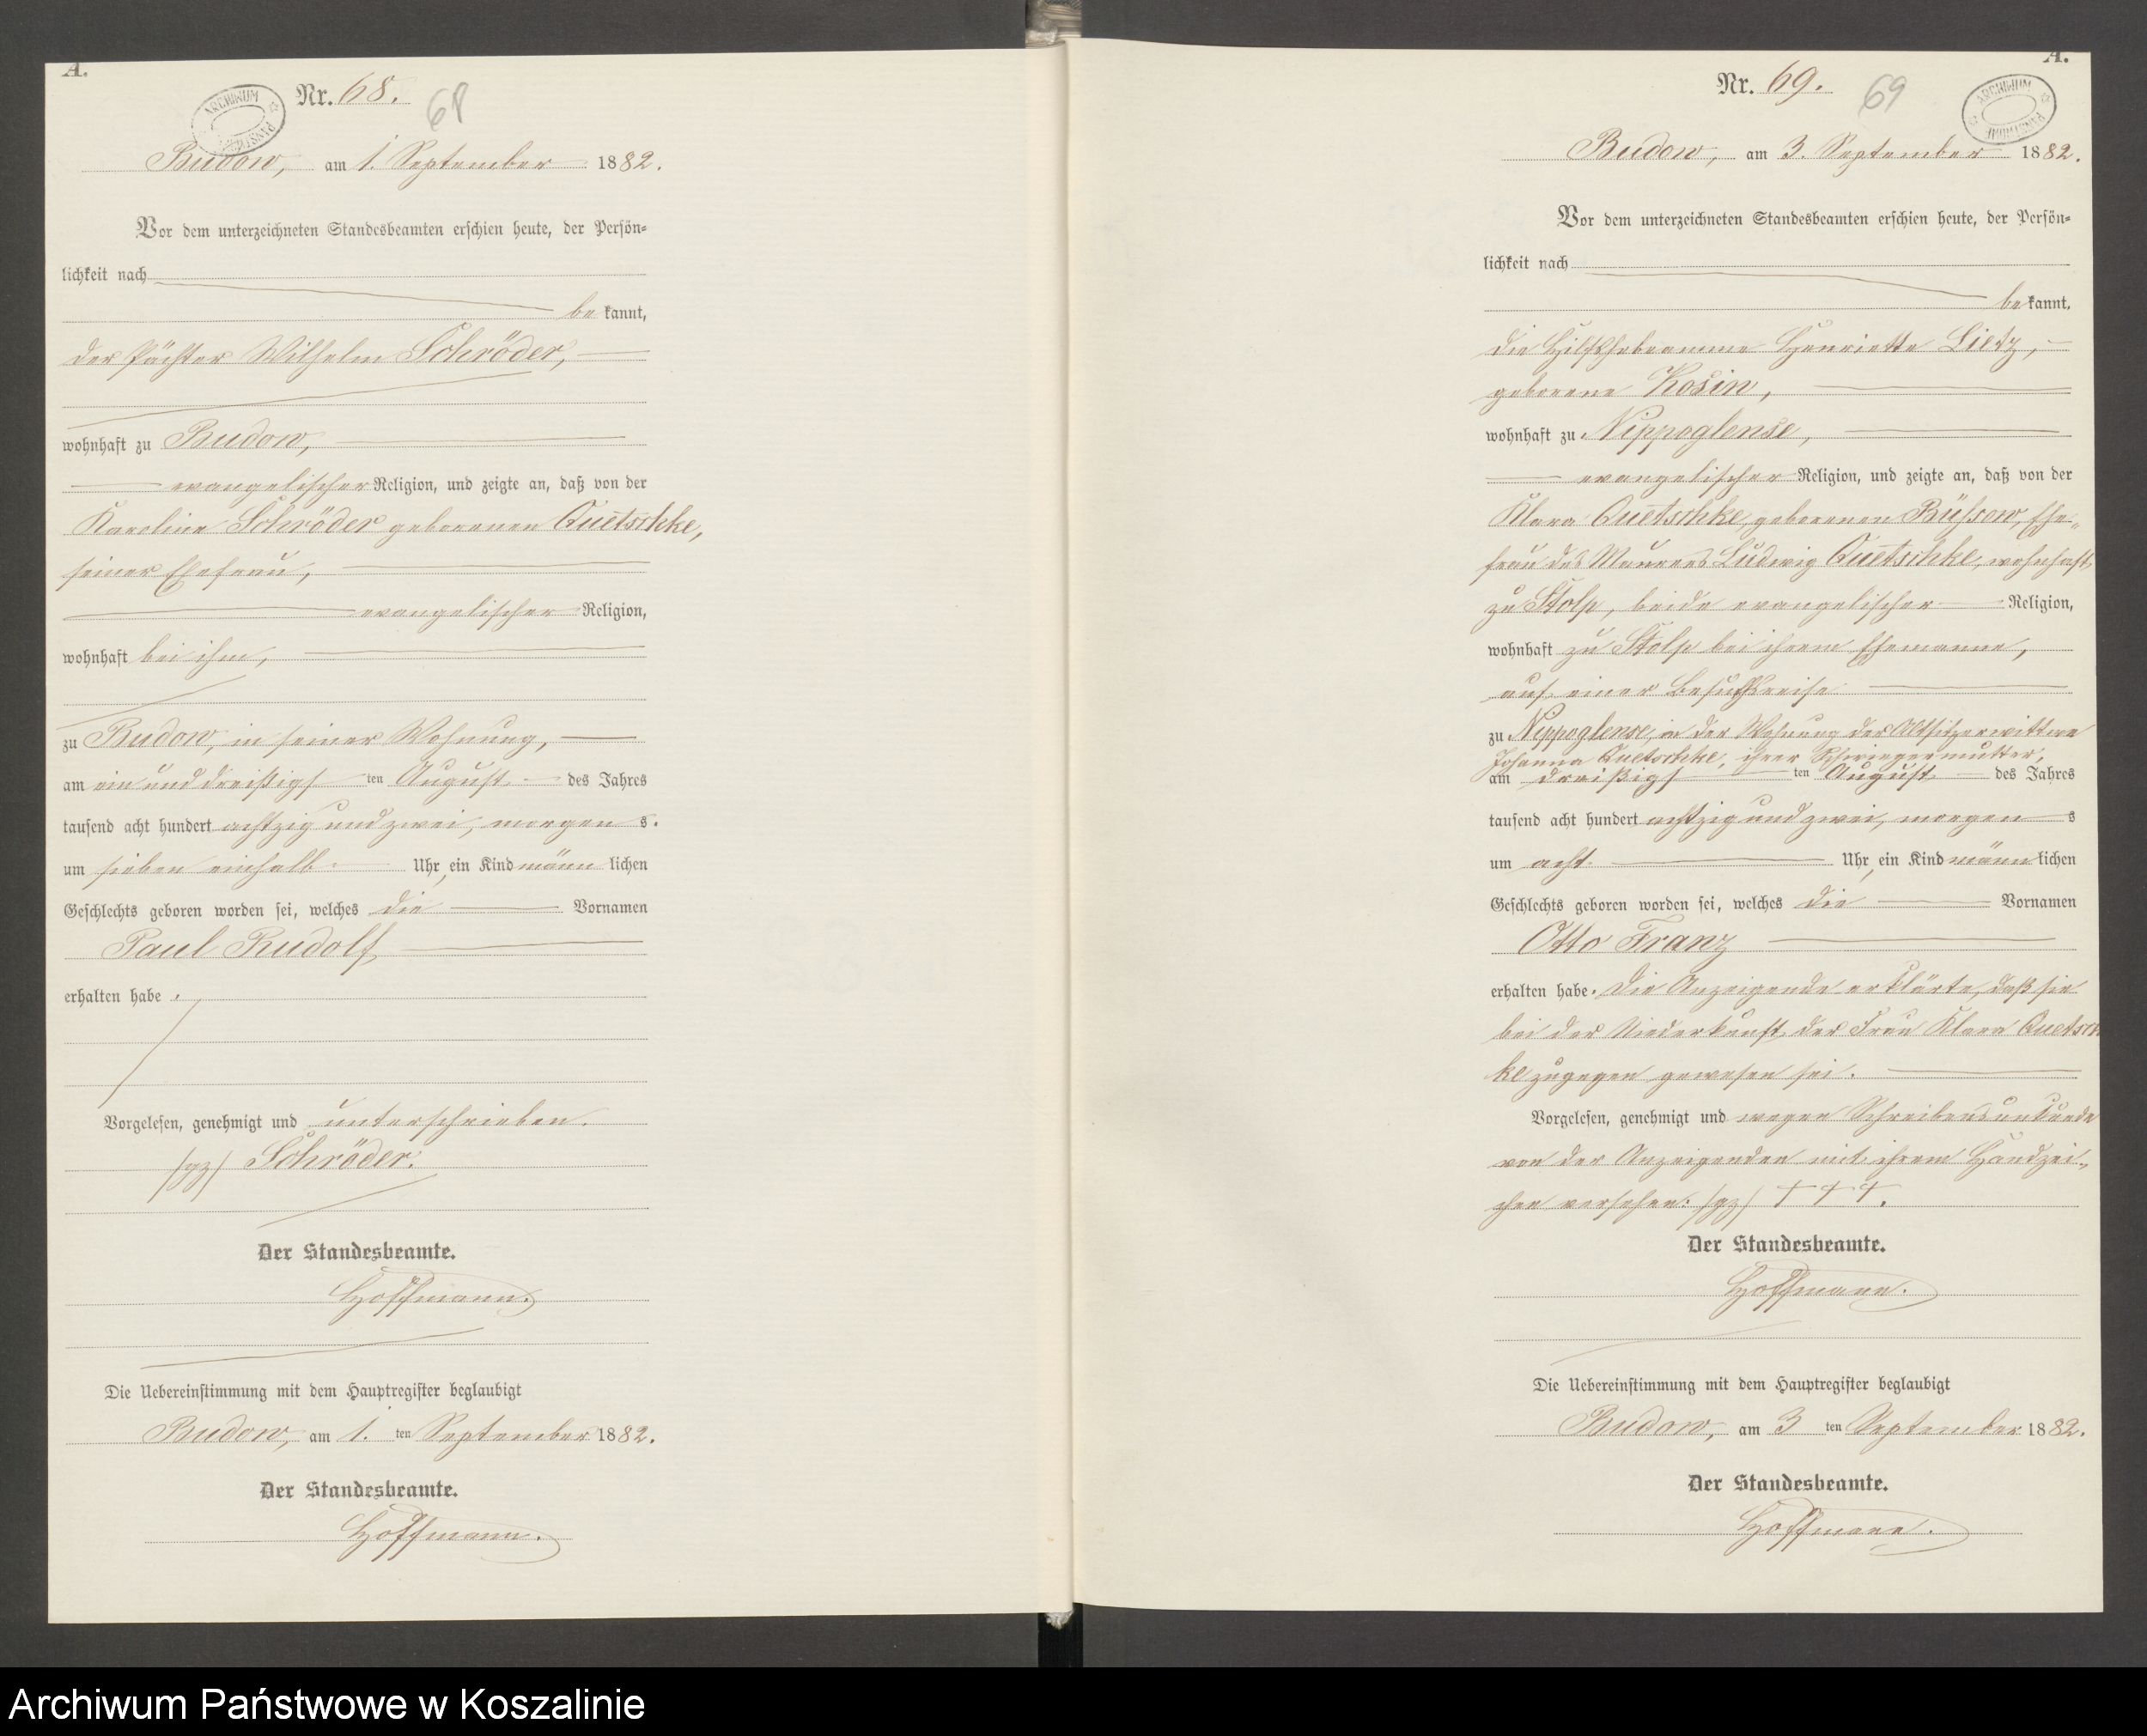 A.
ARCHIWUM PAŃSTWOWE
Nr. 68.
68
Budow, am 1. September 1882.
Vor dem unterzeichneten Standesbeamten erschien heute, der Persön=
lichkeit nach
be kannt,
der Pächter Wilhelm Schröder,
wohnhaft zu Budow,
evangelischer Religion, und zeigte an, daß von der
Karoline Schröder geborenen Quetschke,
seiner Ehefrau,
evangelischer Religion,
wohnhaft bei ihm,
zu Budow, in seiner Wohnung,
am ein und dreißigsten August des Jahres
tausend acht hundert achtzig und zwei, morgens
um sieben einhalb Uhr, ein Kind männlichen
Geschlechts geboren worden sei, welches die Vornamen
Paul Rudolf
erhalten habe.
Vorgelesen, genehmigt und unterschrieben.
/gz/ Schröder.
Der Standesbeamte.
Hoffmann.
Die Uebereinstimmung mit dem Hauptregister beglaubigt
Budow, am 1. ten September 1882.
Der Standesbeamte.
Hoffmann.
A.
ARCHIWUM PAŃSTWOWE
Nr. 69.
69
Budow, am 3. September 1882.
Vor dem unterzeichneten Standesbeamten erschien heute, der Persön=
lichkeit nach
be kannt,
die Hilfshebeamme Henriette Lietz,
geborene Kosin,
wohnhaft zu Nippoglense,
evangelischer Religion, und zeigte an, daß von der
Klara Quetschke, geborenen Büssow, Ehe=
frau des Maurers Ludwig Quetschke, wohnhaft
zu Stolp, beide evangelischer Religion,
wohnhaft zu Stolp bei ihrem Ehemanne,
auf einer Besuchsreise
zu Nippoglense, in der Wohnung der Altsitzerwittwe
Johanna Quetschke, ihrer Schwiegermutter,
am dreißigsten August des Jahres
tausend acht hundert achtzig und zwei, morgens
um acht Uhr, ein Kind männlichen
Geschlechts geboren worden sei, welches die Vornamen
Otto Franz
erhalten habe. Die Anzeigende erklärte, daß sie
bei der Niederkunft der Frau Klara Quetsch
ke zugegen gewesen sei.
Vorgelesen, genehmigt und wegen Schreibensunkunde
von der Anzeigenden mit ihrem Handzei=
chen versehen: /gz/ † † †.
Der Standesbeamte.
Hoffmann.
Die Uebereinstimmung mit dem Hauptregister beglaubigt
Budow, am 3 ten September 1882.
Der Standesbeamte.
Hoffmann.
Archiwum Państwowe w Koszalinie